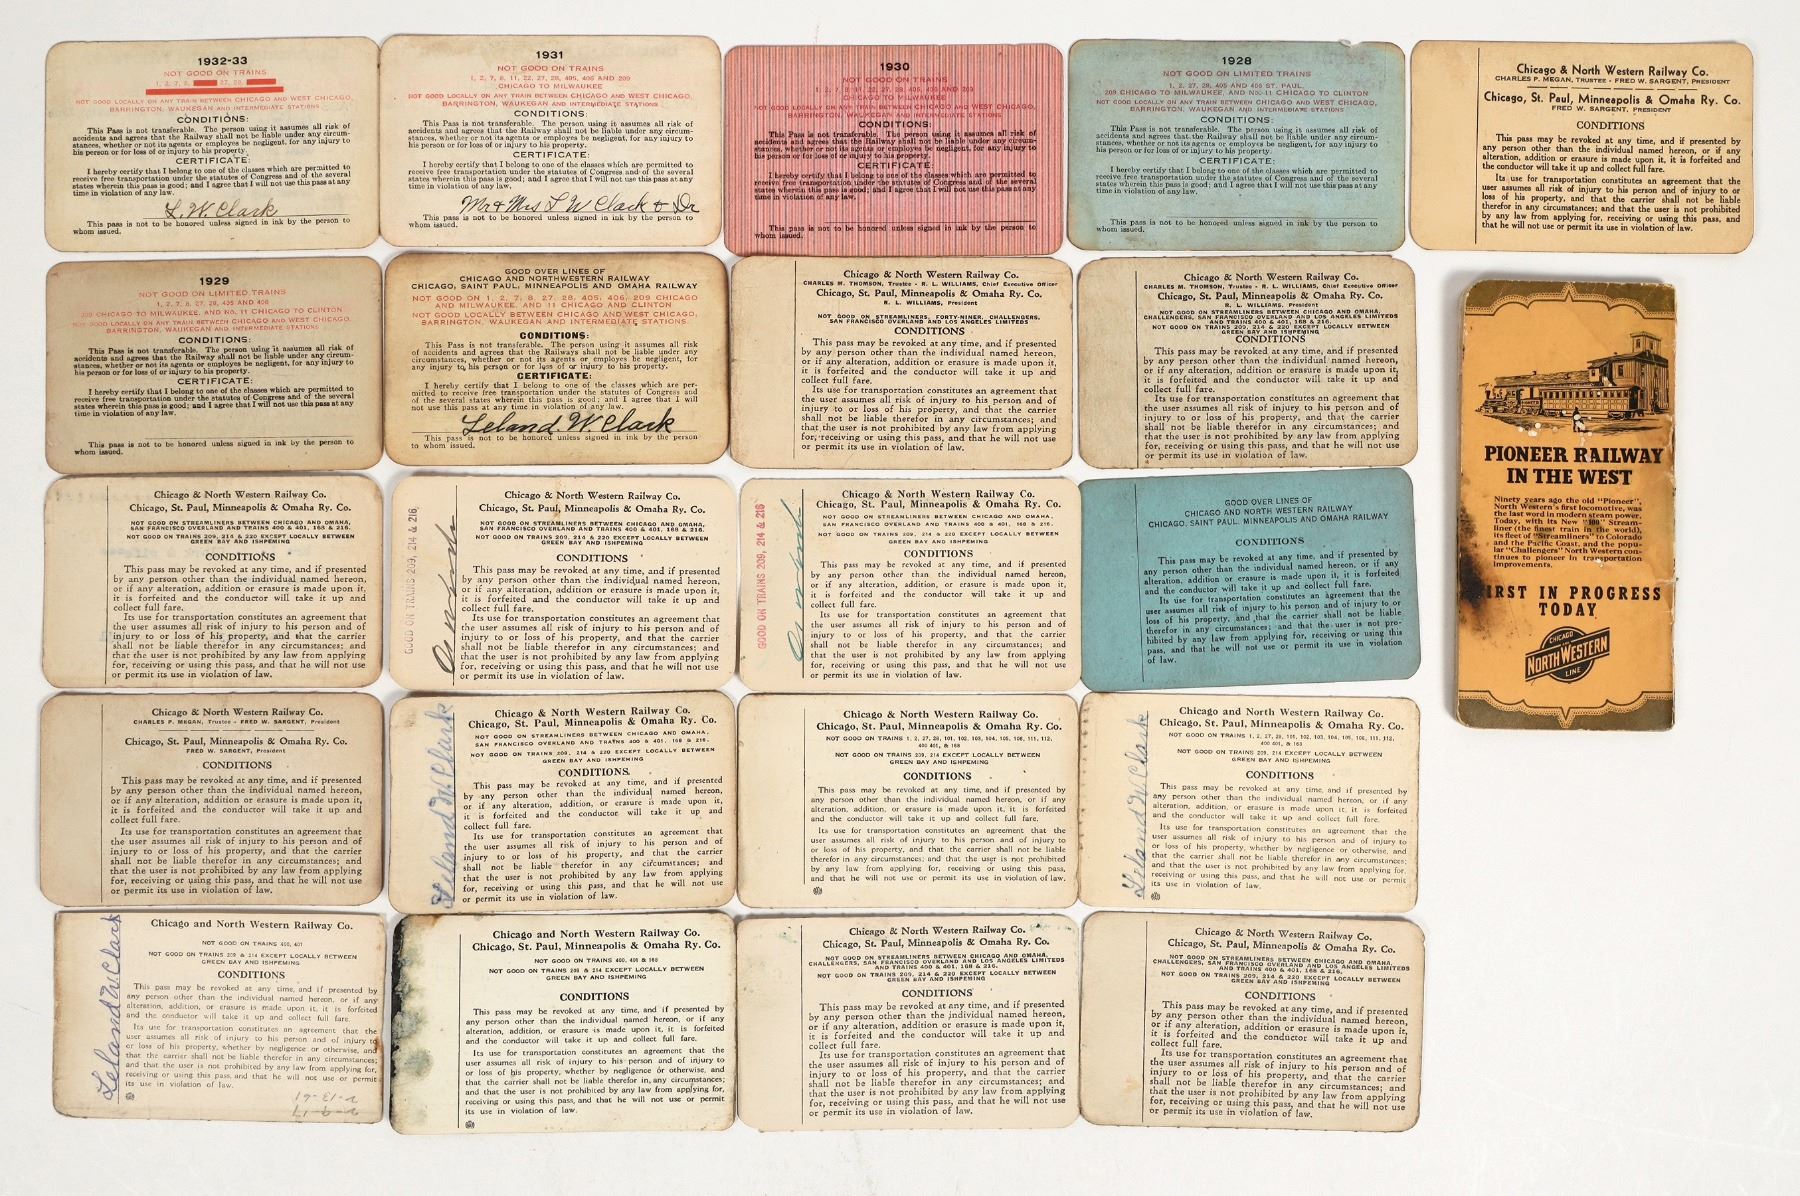 1932-33
NOT GOOD ON TRAINS
1, 2, 7, 8, 27, 28,
NOT GOOD LOCALLY ON ANY TRAIN BETWEEN CHICAGO AND WEST CHICAGO,
BARRINGTON, WAUKEGAN AND INTERMEDIATE STATIONS
CONDITIONS:
This Pass is not transferable. The person using it assumes all risk of
accidents and agrees that the Railway shall not be liable under any circum-
stances, whether or not its agents or employes be negligent, for any injury to
his person or for loss of or injury to his property.
CERTIFICATE:
I hereby certify that I belong to one of the classes which are permitted to
receive free transportation under the statutes of Congress and of the several
states wherein this pass is good; and I agree that I will not use this pass at any
time in violation of any law.
L. W. Clark
This pass is not to be honored unless signed in ink by the person to
whom issued.
1931
NOT GOOD ON TRAINS
1, 2, 7, 8, 11, 22, 27, 28, 405, 406 AND 209
CHICAGO TO MILWAUKEE
NOT GOOD LOCALLY ON ANY TRAIN BETWEEN CHICAGO AND WEST CHICAGO,
BARRINGTON, WAUKEGAN AND INTERMEDIATE STATIONS
CONDITIONS:
This Pass is not transferable. The person using it assumes all risk of
accidents and agrees that the Railway shall not be liable under any circum-
stances, whether or not its agents or employes be negligent, for any injury to
his person or for loss of or injury to his property.
CERTIFICATE:
I hereby certify that I belong to one of the classes which are permitted to
receive free transportation under the statutes of Congress and of the several
states wherein this pass is good; and I agree that I will not use this pass at any
time in violation of any law.
Mr & Mrs L W Clark & Da
This pass is not to be honored unless signed in ink by the person to
whom issued.
1930
NOT GOOD ON TRAINS
1, 2, 7, 8, 11, 22, 27, 28, 405, 406 AND 209
CHICAGO TO MILWAUKEE
NOT GOOD LOCALLY ON ANY TRAIN BETWEEN CHICAGO AND WEST CHICAGO,
BARRINGTON, WAUKEGAN AND INTERMEDIATE STATIONS
CONDITIONS:
This Pass is not transferable. The person using it assumes all risk of
accidents and agrees that the Railway shall not be liable under any circum-
stances, whether or not its agents or employes be negligent, for any injury to
his person or for loss of or injury to his property.
CERTIFICATE:
I hereby certify that I belong to one of the classes which are permitted to
receive free transportation under the statutes of Congress and of the several
states wherein this pass is good; and I agree that I will not use this pass at any
time in violation of any law.
This pass is not to be honored unless signed in ink by the person to
whom issued.
1928
NOT GOOD ON LIMITED TRAINS
1, 2, 27, 28, 405 AND 406 ST. PAUL,
209 CHICAGO TO MILWAUKEE, AND NO. 11 CHICAGO TO CLINTON
NOT GOOD LOCALLY ON ANY TRAIN BETWEEN CHICAGO AND WEST CHICAGO,
BARRINGTON, WAUKEGAN AND INTERMEDIATE STATIONS
CONDITIONS:
This Pass is not transferable. The person using it assumes all risk of
accidents and agrees that the Railway shall not be liable under any circum-
stances, whether or not its agents or employes be negligent, for any injury to
his person or for loss of or injury to his property.
CERTIFICATE:
I hereby certify that I belong to one of the classes which are permitted to
receive free transportation under the statutes of Congress and of the several
states wherein this pass is good; and I agree that I will not use this pass at any
time in violation of any law.
This pass is not to be honored unless signed in ink by the person to
whom issued.
Chicago & North Western Railway Co.
CHARLES P. MEGAN, TRUSTEE - FRED W. SARGENT, PRESIDENT
Chicago, St. Paul, Minneapolis & Omaha Ry. Co.
FRED W. SARGENT, PRESIDENT
CONDITIONS
This pass may be revoked at any time, and if presented by
any person other than the individual named hereon, or if any
alteration, addition or erasure is made upon it, it is forfeited and
the conductor will take it up and collect full fare.
Its use for transportation constitutes an agreement that the
user assumes all risk of injury to his person and of injury to or
loss of his property, and that the carrier shall not be liable
therefor in any circumstances; and that the user is not prohibited
by any law from applying for, receiving or using this pass, and
that he will not use or permit its use in violation of law.
1929
NOT GOOD ON LIMITED TRAINS
1, 2, 7, 8, 27, 28, 405 AND 406
209 CHICAGO TO MILWAUKEE, AND NO. 11 CHICAGO TO CLINTON
NOT GOOD LOCALLY ON ANY TRAIN BETWEEN CHICAGO AND WEST CHICAGO,
BARRINGTON, WAUKEGAN AND INTERMEDIATE STATIONS
CONDITIONS:
This Pass is not transferable. The person using it assumes all risk of
accidents and agrees that the Railway shall not be liable under any circum-
stances, whether or not its agents or employes be negligent, for any injury to
his person or for loss of or injury to his property.
CERTIFICATE:
I hereby certify that I belong to one of the classes which are permitted to
receive free transportation under the statutes of Congress and of the several
states wherein this pass is good; and I agree that I will not use this pass at any
time in violation of any law.
This pass is not to be honored unless signed in ink by the person to
whom issued.
GOOD OVER LINES OF
CHICAGO AND NORTHWESTERN RAILWAY
CHICAGO, SAINT PAUL, MINNEAPOLIS AND OMAHA RAILWAY
NOT GOOD ON 1, 2, 7, 8, 27, 28, 405, 406, 209 CHICAGO
AND MILWAUKEE, AND 11 CHICAGO AND CLINTON
NOT GOOD LOCALLY BETWEEN CHICAGO AND WEST CHICAGO,
BARRINGTON, WAUKEGAN AND INTERMEDIATE STATIONS.
CONDITIONS:
This Pass is not transferable. The person using it assumes all risk of
accidents and agrees that the Railways shall not be liable under any
circumstances, whether or not its agents or employes be negligent, for
any injury to his person or for loss of or injury to his property.
CERTIFICATE:
I hereby certify that I belong to one of the classes which are per-
mitted to receive free transportation under the statutes of Congress and
of the several states wherein this pass is good; and I agree that I will
not use this pass at any time in violation of any law.
Leland W Clark
This pass is not to be honored unless signed in ink by the person
to whom issued.
Chicago & North Western Railway Co.
CHARLES M. THOMSON, Trustee - R. L. WILLIAMS, Chief Executive Officer
Chicago, St. Paul, Minneapolis & Omaha Ry. Co.
R. L. WILLIAMS, President
NOT GOOD ON STREAMLINERS, FORTY-NINER, CHALLENGERS,
SAN FRANCISCO OVERLAND AND LOS ANGELES LIMITEDS
CONDITIONS
This pass may be revoked at any time, and if presented
by any person other than the individual named hereon,
or if any alteration, addition or erasure is made upon it,
it is forfeited and the conductor will take it up and
collect full fare.
Its use for transportation constitutes an agreement that
the user assumes all risk of injury to his person and of
injury to or loss of his property, and that the carrier
shall not be liable therefor in any circumstances; and
that the user is not prohibited by any law from applying
for, receiving or using this pass, and that he will not use
or permit its use in violation of law.
Chicago & North Western Railway Co.
CHARLES M. THOMSON, Trustee - R. L. WILLIAMS, Chief Executive Officer
Chicago, St. Paul, Minneapolis & Omaha Ry. Co.
R. L. WILLIAMS, President
NOT GOOD ON STREAMLINERS BETWEEN CHICAGO AND OMAHA,
CHALLENGERS, SAN FRANCISCO OVERLAND AND LOS ANGELES LIMITEDS
AND TRAINS 400 & 401, 168 & 216.
NOT GOOD ON TRAINS 209, 214 & 220 EXCEPT LOCALLY BETWEEN
GREEN BAY AND ISHPEMING
CONDITIONS
This pass may be revoked at any time, and if presented
by any person other than the individual named hereon,
or if any alteration, addition or erasure is made upon it,
it is forfeited and the conductor will take it up and
collect full fare.
Its use for transportation constitutes an agreement that
the user assumes all risk of injury to his person and of
injury to or loss of his property, and that the carrier
shall not be liable therefor in any circumstances; and
that the user is not prohibited by any law from applying
for, receiving or using this pass, and that he will not use
or permit its use in violation of law.
PIONEER RAILWAY
IN THE WEST
Ninety years ago the old "Pioneer",
North Western's first locomotive, was
the last word in modern steam power.
Today, with its New "400" Stream-
liner (the finest train in the world),
its fleet of "Streamliners" to Colorado
and the Pacific Coast, and the popu-
lar "Challengers" North Western con-
tinues to pioneer in transportation
improvements.
IRST IN PROGRESS
TODAY
CHICAGO
NORTH WESTERN
LINE
Chicago & North Western Railway Co.
Chicago, St. Paul, Minneapolis & Omaha Ry. Co.
NOT GOOD ON STREAMLINERS BETWEEN CHICAGO AND OMAHA,
SAN FRANCISCO OVERLAND AND TRAINS 400 & 401, 168 & 216.
NOT GOOD ON TRAINS 209, 214 & 220 EXCEPT LOCALLY BETWEEN
GREEN BAY AND ISHPEMING
CONDITIONS
This pass may be revoked at any time, and if presented
by any person other than the individual named hereon,
or if any alteration, addition or erasure is made upon it,
it is forfeited and the conductor will take it up and
collect full fare.
Its use for transportation constitutes an agreement that
the user assumes all risk of injury to his person and of
injury to or loss of his property, and that the carrier
shall not be liable therefor in any circumstances; and
that the user is not prohibited by any law from applying
for, receiving or using this pass, and that he will not use
or permit its use in violation of law.
GOOD ON TRAINS 209, 214 & 216
Chicago & North Western Railway Co.
Chicago, St. Paul, Minneapolis & Omaha Ry. Co.
NOT GOOD ON STREAMLINERS BETWEEN CHICAGO AND OMAHA,
SAN FRANCISCO OVERLAND AND TRAINS 400 & 401, 168 & 216.
NOT GOOD ON TRAINS 209, 214 & 220 EXCEPT LOCALLY BETWEEN
GREEN BAY AND ISHPEMING
CONDITIONS
This pass may be revoked at any time, and if presented
by any person other than the individual named hereon,
or if any alteration, addition or erasure is made upon it,
it is forfeited and the conductor will take it up and
collect full fare.
Its use for transportation constitutes an agreement that
the user assumes all risk of injury to his person and of
injury to or loss of his property, and that the carrier
shall not be liable therefor in any circumstances; and
that the user is not prohibited by any law from applying
for, receiving or using this pass, and that he will not use
or permit its use in violation of law.
GOOD ON TRAINS 209, 214 & 216
Chicago & North Western Railway Co.
Chicago, St. Paul, Minneapolis & Omaha Ry. Co.
NOT GOOD ON STREAMLINERS BETWEEN CHICAGO AND OMAHA,
SAN FRANCISCO OVERLAND AND TRAINS 400 & 401, 168 & 216.
NOT GOOD ON TRAINS 209, 214 & 220 EXCEPT LOCALLY BETWEEN
GREEN BAY AND ISHPEMING
CONDITIONS
This pass may be revoked at any time, and if presented
by any person other than the individual named hereon,
or if any alteration, addition or erasure is made upon it,
it is forfeited and the conductor will take it up and
collect full fare.
Its use for transportation constitutes an agreement that
the user assumes all risk of injury to his person and of
injury to or loss of his property, and that the carrier
shall not be liable therefor in any circumstances; and
that the user is not prohibited by any law from applying
for, receiving or using this pass, and that he will not use
or permit its use in violation of law.
GOOD OVER LINES OF
CHICAGO AND NORTH WESTERN RAILWAY
CHICAGO, SAINT PAUL, MINNEAPOLIS AND OMAHA RAILWAY
CONDITIONS
This pass may be revoked at any time, and if presented by
any person other than the individual named hereon, or if any
alteration, addition or erasure is made upon it, it is forfeited
and the conductor will take it up and collect full fare.
Its use for transportation constitutes an agreement that the
user assumes all risk of injury to his person and of injury to or
loss of his property, and that the carrier shall not be liable
therefor in any circumstances; and that the user is not pro-
hibited by any law from applying for, receiving or using this
pass, and that he will not use or permit its use in violation
of law.
Chicago & North Western Railway Co.
CHARLES P. MEGAN, Trustee - FRED W. SARGENT, President
Chicago, St. Paul, Minneapolis & Omaha Ry. Co.
FRED W. SARGENT, President
CONDITIONS
This pass may be revoked at any time, and if presented
by any person other than the individual named hereon,
or if any alteration, addition or erasure is made upon it,
it is forfeited and the conductor will take it up and
collect full fare.
Its use for transportation constitutes an agreement that
the user assumes all risk of injury to his person and of
injury to or loss of his property, and that the carrier
shall not be liable therefor in any circumstances; and
that the user is not prohibited by any law from applying
for, receiving or using this pass, and that he will not use
or permit its use in violation of law.
Leland W Clark
Chicago & North Western Railway Co.
Chicago, St. Paul, Minneapolis & Omaha Ry. Co.
NOT GOOD ON STREAMLINERS BETWEEN CHICAGO AND OMAHA,
SAN FRANCISCO OVERLAND AND TRAINS 400 & 401, 168 & 216.
NOT GOOD ON TRAINS 209, 214 & 220 EXCEPT LOCALLY BETWEEN
GREEN BAY AND ISHPEMING
CONDITIONS.
This pass may be revoked at any time, and if presented
by any person other than the individual named hereon,
or if any alteration, addition, or erasure is made upon it,
it is forfeited and the conductor will take it up and
collect full fare.
Its use for transportation constitutes an agreement that
the user assumes all risk of injury to his person and of
injury to or loss of his property, and that the carrier
shall not be liable therefor in any circumstances; and
that the user is not prohibited by any law from applying
for, receiving or using this pass, and that he will not use
or permit its use in violation of law.
Chicago & North Western Railway Co.
Chicago, St. Paul, Minneapolis & Omaha Ry. Co.
NOT GOOD ON TRAINS 1, 2, 27, 28, 101, 102, 103, 104, 105, 106, 111, 112,
400 401, & 168
NOT GOOD ON TRAINS 209, 214 EXCEPT LOCALLY BETWEEN
GREEN BAY AND ISHPEMING
CONDITIONS
This pass may be revoked at any time, and if presented by
any person other than the individual named hereon, or if any
alteration, addition, or erasure is made upon it, it is forfeited
and the conductor will take it up and collect full fare.
Its use for transportation constitutes an agreement that the
user assumes all risk of injury to his person and of injury to
or loss of his property, and that the carrier shall not be liable
therefor in any circumstances; and that the user is not prohibited
by any law from applying for, receiving or using this pass,
and that he will not use or permit its use in violation of law.
Leland W Clark
Chicago and North Western Railway Co.
Chicago, St. Paul, Minneapolis & Omaha Ry. Co.
NOT GOOD ON TRAINS 1, 2, 27, 28, 101, 102, 103, 104, 105, 106, 111, 112,
400 401, & 168
NOT GOOD ON TRAINS 209, 214 EXCEPT LOCALLY BETWEEN
GREEN BAY AND ISHPEMING
CONDITIONS
This pass may be revoked at any time, and if presented by
any person other than the individual named hereon, or if any
alteration, addition, or erasure is made upon it, it is forfeited
and the conductor will take it up and collect full fare.
Its use for transportation constitutes an agreement that the
user assumes all risk of injury to his person and of injury to
or loss of his property, whether by negligence or otherwise, and
that the carrier shall not be liable therefor in any circumstances;
and that the user is not prohibited by any law from applying for,
receiving or using this pass, and that he will not use or permit
its use in violation of law.
Leland W Clark
Chicago and North Western Railway Co.
NOT GOOD ON TRAINS 400, 401
NOT GOOD ON TRAINS 209 & 214 EXCEPT LOCALLY BETWEEN
GREEN BAY AND ISHPEMING
CONDITIONS
This pass may be revoked at any time, and if presented by
any person other than the individual named hereon, or if any
alteration, addition, or erasure is made upon it, it is forfeited
and the conductor will take it up and collect full fare.
Its use for transportation constitutes an agreement that the
user assumes all risk of injury to his person and of injury to
or loss of his property, whether by negligence or otherwise, and
that the carrier shall not be liable therefor in any circumstances;
and that the user is not prohibited by any law from applying for,
receiving or using this pass, and that he will not use or permit
its use in violation of law.
2-13-61
Chicago and North Western Railway Co.
Chicago, St. Paul, Minneapolis & Omaha Ry. Co.
NOT GOOD ON TRAINS 400, 401 & 168
NOT GOOD ON TRAINS 209 & 214 EXCEPT LOCALLY BETWEEN
GREEN BAY AND ISHPEMING
CONDITIONS
This pass may be revoked at any time, and if presented by
any person other than the individual named hereon, or if any
alteration, addition, or erasure is made upon it, it is forfeited
and the conductor will take it up and collect full fare.
Its use for transportation constitutes an agreement that the
user assumes all risk of injury to his person and of injury to
or loss of his property, whether by negligence or otherwise, and
that the carrier shall not be liable therefor in any circumstances;
and that the user is not prohibited by any law from applying for,
receiving or using this pass, and that he will not use or permit
its use in violation of law.
Chicago & North Western Railway Co.
Chicago, St. Paul, Minneapolis & Omaha Ry. Co.
NOT GOOD ON STREAMLINERS BETWEEN CHICAGO AND OMAHA,
CHALLENGERS, SAN FRANCISCO OVERLAND AND LOS ANGELES LIMITEDS
AND TRAINS 400 & 401, 168 & 216.
NOT GOOD ON TRAINS 209, 214 & 220 EXCEPT LOCALLY BETWEEN
GREEN BAY AND ISHPEMING
CONDITIONS
This pass may be revoked at any time, and if presented
by any person other than the individual named hereon,
or if any alteration, addition or erasure is made upon it,
it is forfeited and the conductor will take it up and
collect full fare.
Its use for transportation constitutes an agreement that
the user assumes all risk of injury to his person and of
injury to or loss of his property, and that the carrier
shall not be liable therefor in any circumstances; and
that the user is not prohibited by any law from applying
for, receiving or using this pass, and that he will not use
or permit its use in violation of law.
Chicago & North Western Railway Co.
Chicago, St. Paul, Minneapolis & Omaha Ry. Co.
NOT GOOD ON STREAMLINERS BETWEEN CHICAGO AND OMAHA,
CHALLENGERS, SAN FRANCISCO OVERLAND AND LOS ANGELES LIMITEDS
AND TRAINS 400 & 401, 168 & 216.
NOT GOOD ON TRAINS 209, 214 & 220 EXCEPT LOCALLY BETWEEN
GREEN BAY AND ISHPEMING
CONDITIONS
This pass may be revoked at any time, and if presented
by any person other than the individual named hereon,
or if any alteration, addition or erasure is made upon it,
it is forfeited and the conductor will take it up and
collect full fare.
Its use for transportation constitutes an agreement that
the user assumes all risk of injury to his person and of
injury to or loss of his property, and that the carrier
shall not be liable therefor in any circumstances; and
that the user is not prohibited by any law from applying
for, receiving or using this pass, and that he will not use
or permit its use in violation of law.